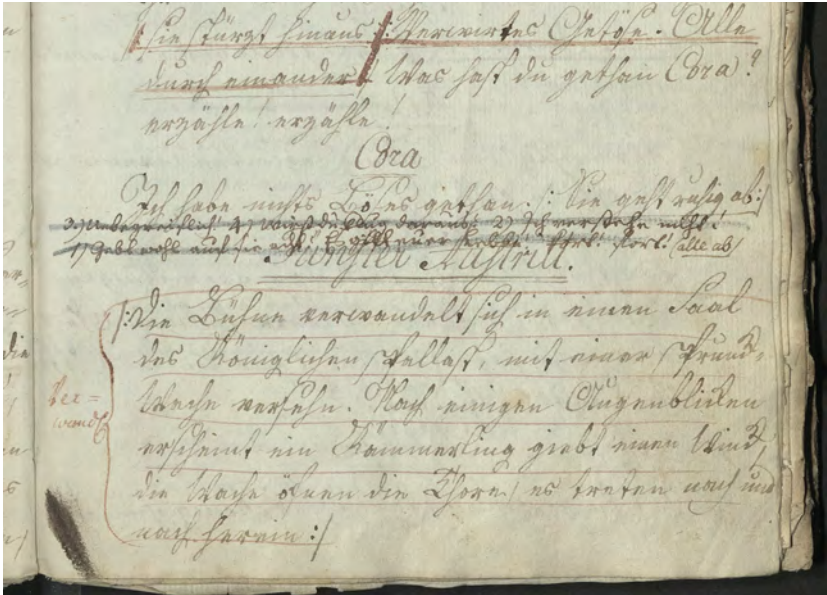 /: sie stürzt hinaus :/: Verwirrtes Getöse. Alle
durch einander :/ Was hast du gethan Cora?
erzähle! erzähle!
Cora
Ich habe nichts Böses gethan. /: Sie geht ruhig ab:/
3.) Unbegreiflich! 4) wirst du klug daraus? 2) Ich verstehe nicht!
1) Gebt wohl auf sie acht! fort! fort! (alle ab)
Fünfter Auftritt.
/: Die Bühne verwandelt sich in einen Saal
des Königlichen Pallast, mit einer
Wache versehn. Nach einigen Augenblicken
erscheint ein Kämmerling giebt einen Wink,
die Wache öfnen die Thore / es treten nach und
nach herein :/
Ver=
wandl